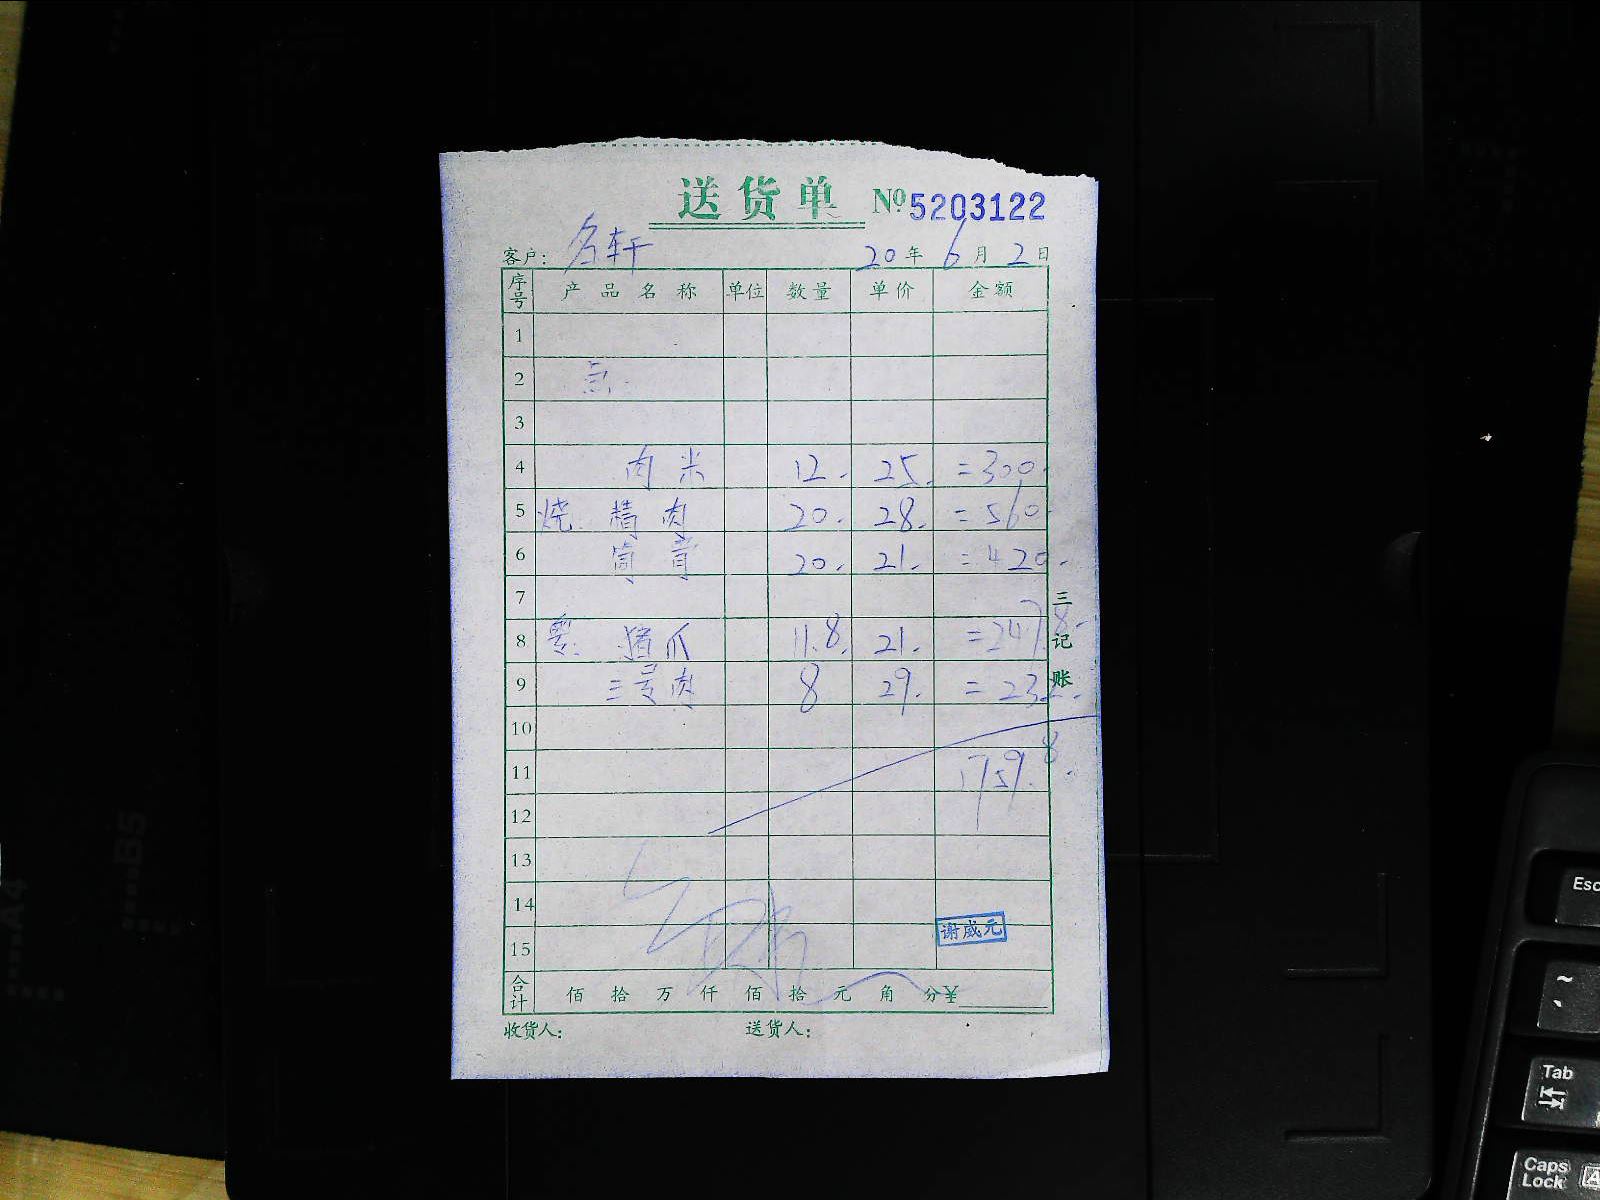 送货单 №5203122
客户: 名轩 20年6月2日
序号 产品名称 单位 数量 单价 金额
1
2
3
4 肉米 12. 25. =300.
5 烧. 精肉 20. 28. =560.
6 筒骨 20. 21. =420.
7
8 猪爪 11.8. 21. =247.8.
9 三号肉 8 29. =232.
10
11 1759.8.
12
13
14
15
谢威元
合计 佰 拾 万 仟 佰 拾 元 角 分 ¥
收货人: 送货人:
三记账
A4
B5
Esc
~
Tab
Caps Lock
A